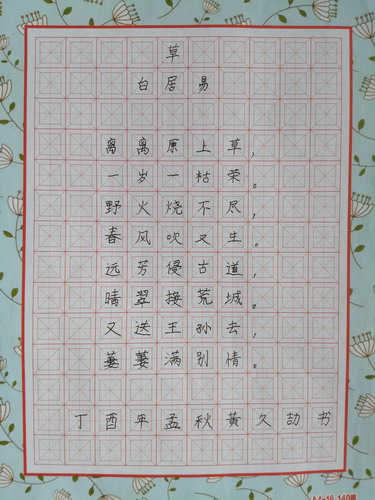 草
白居易
离离原上草，
一岁一枯荣。
野火烧不尽，
春风吹又生。
远芳侵古道，
晴翠接荒城。
又送王孙去，
萋萋满别情。
丁酉年孟秋黄久劼书
A4-16 140格